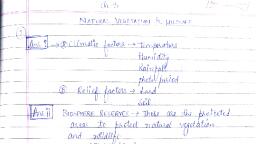 Ch 5
NATURAL VEGETATION & WILDLIFE
Ans i → (A) Climatic factors → Temperature
Humidity
Rainfall
photo period
(B) Relief factors → Land
Soil
Ans ii BIOSPHERE RESERVES → These are the protected
areas to protect natural vegetation
and wildlife